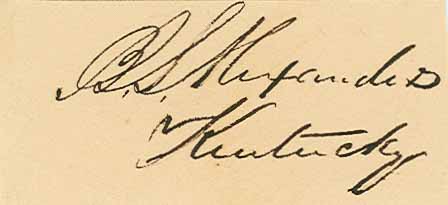 B. S. Alexander
Kentucky